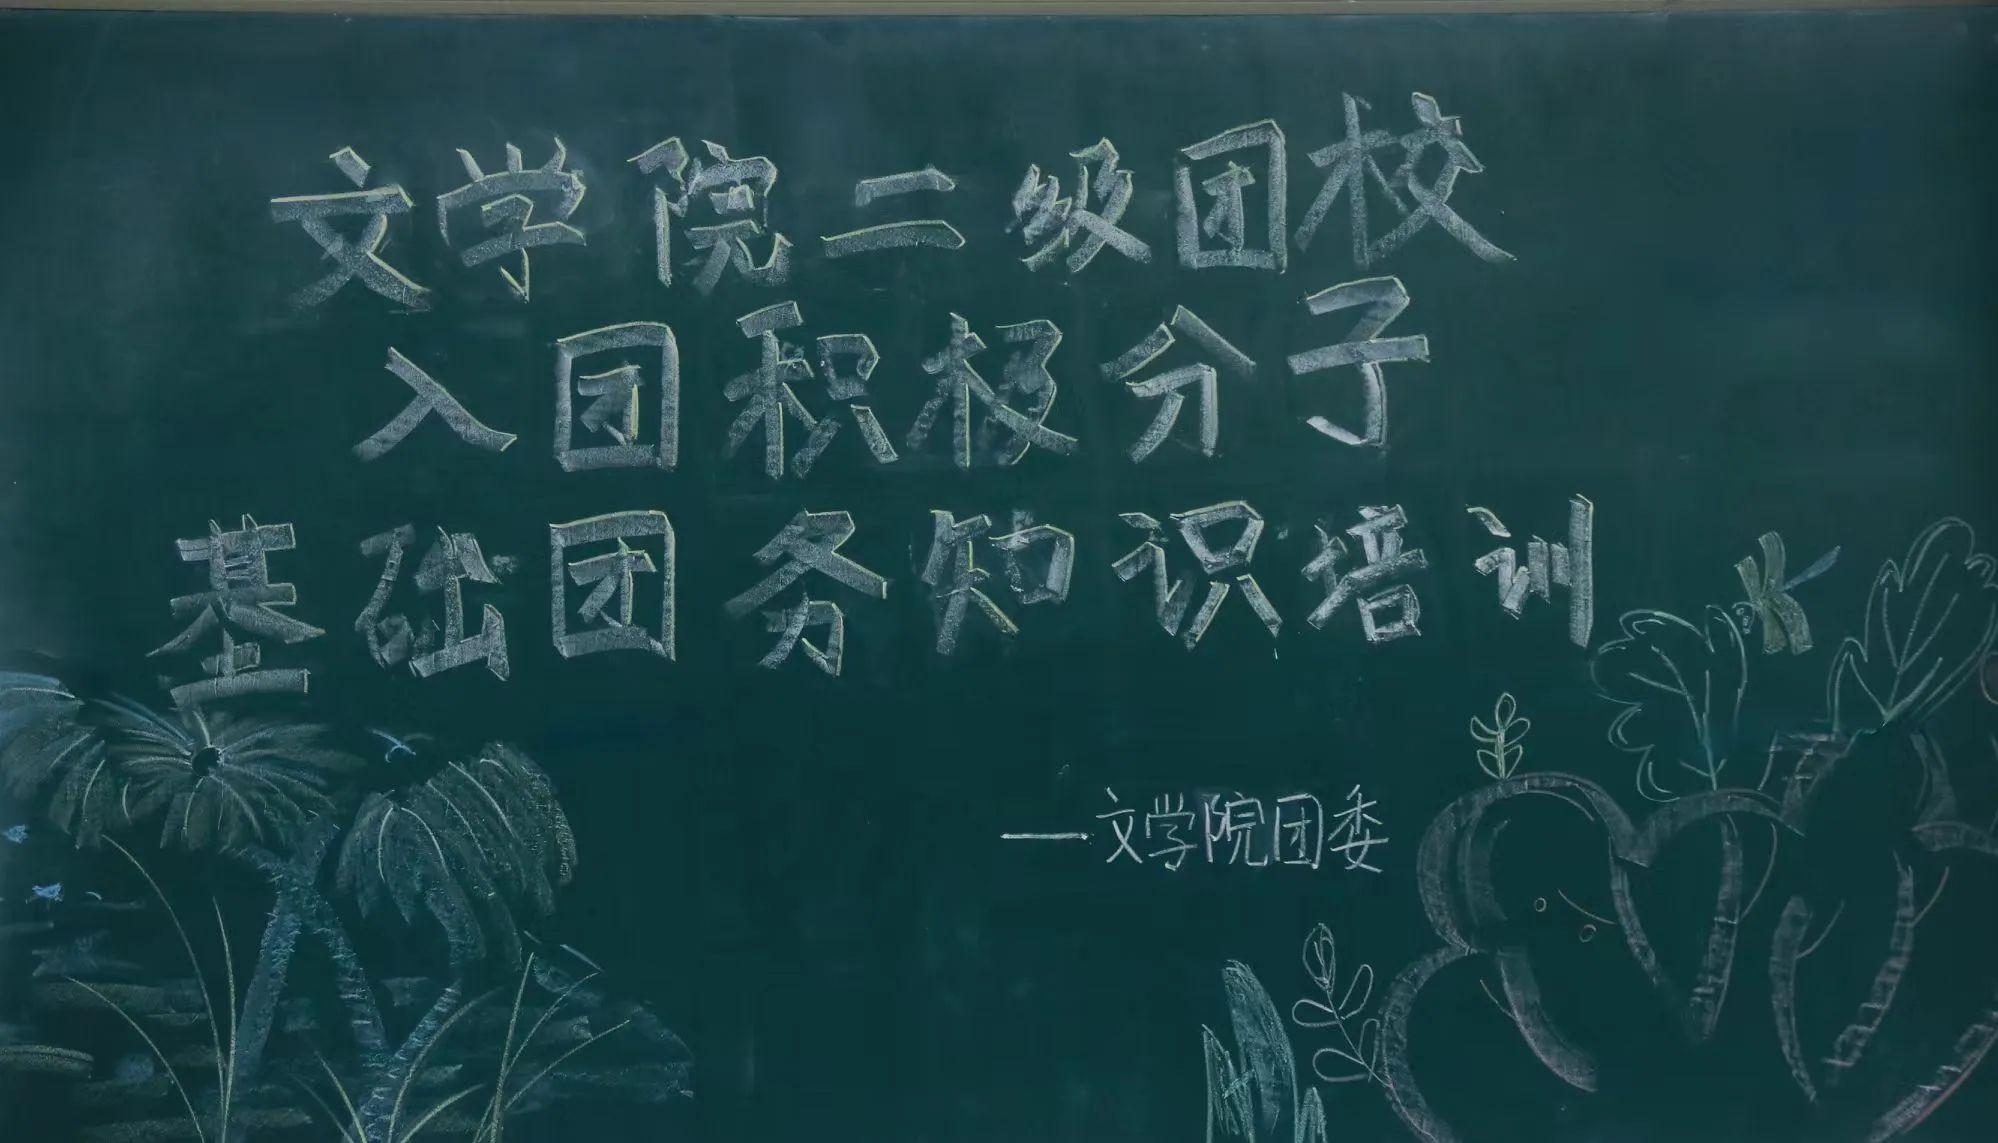 文学院二级团校
入团积极分子
基础团务知识培训
—文学院团委